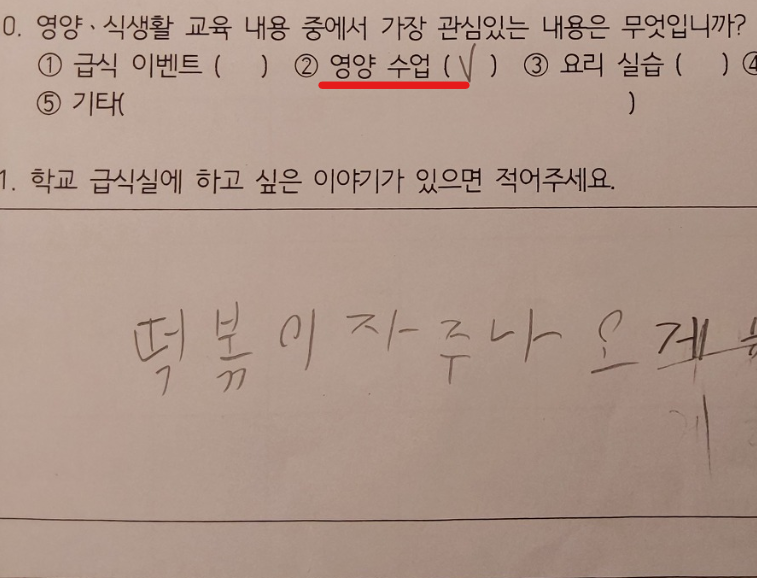 0. 영양·식생활 교육 내용 중에서 가장 관심있는 내용은 무엇입니까?
① 급식 이벤트 ( ) ② 영양 수업 (√) ③ 요리 실습 ( ) ④
⑤ 기타( )
1. 학교 급식실에 하고 싶은 이야기가 있으면 적어주세요.
떡볶이 자주 나오게